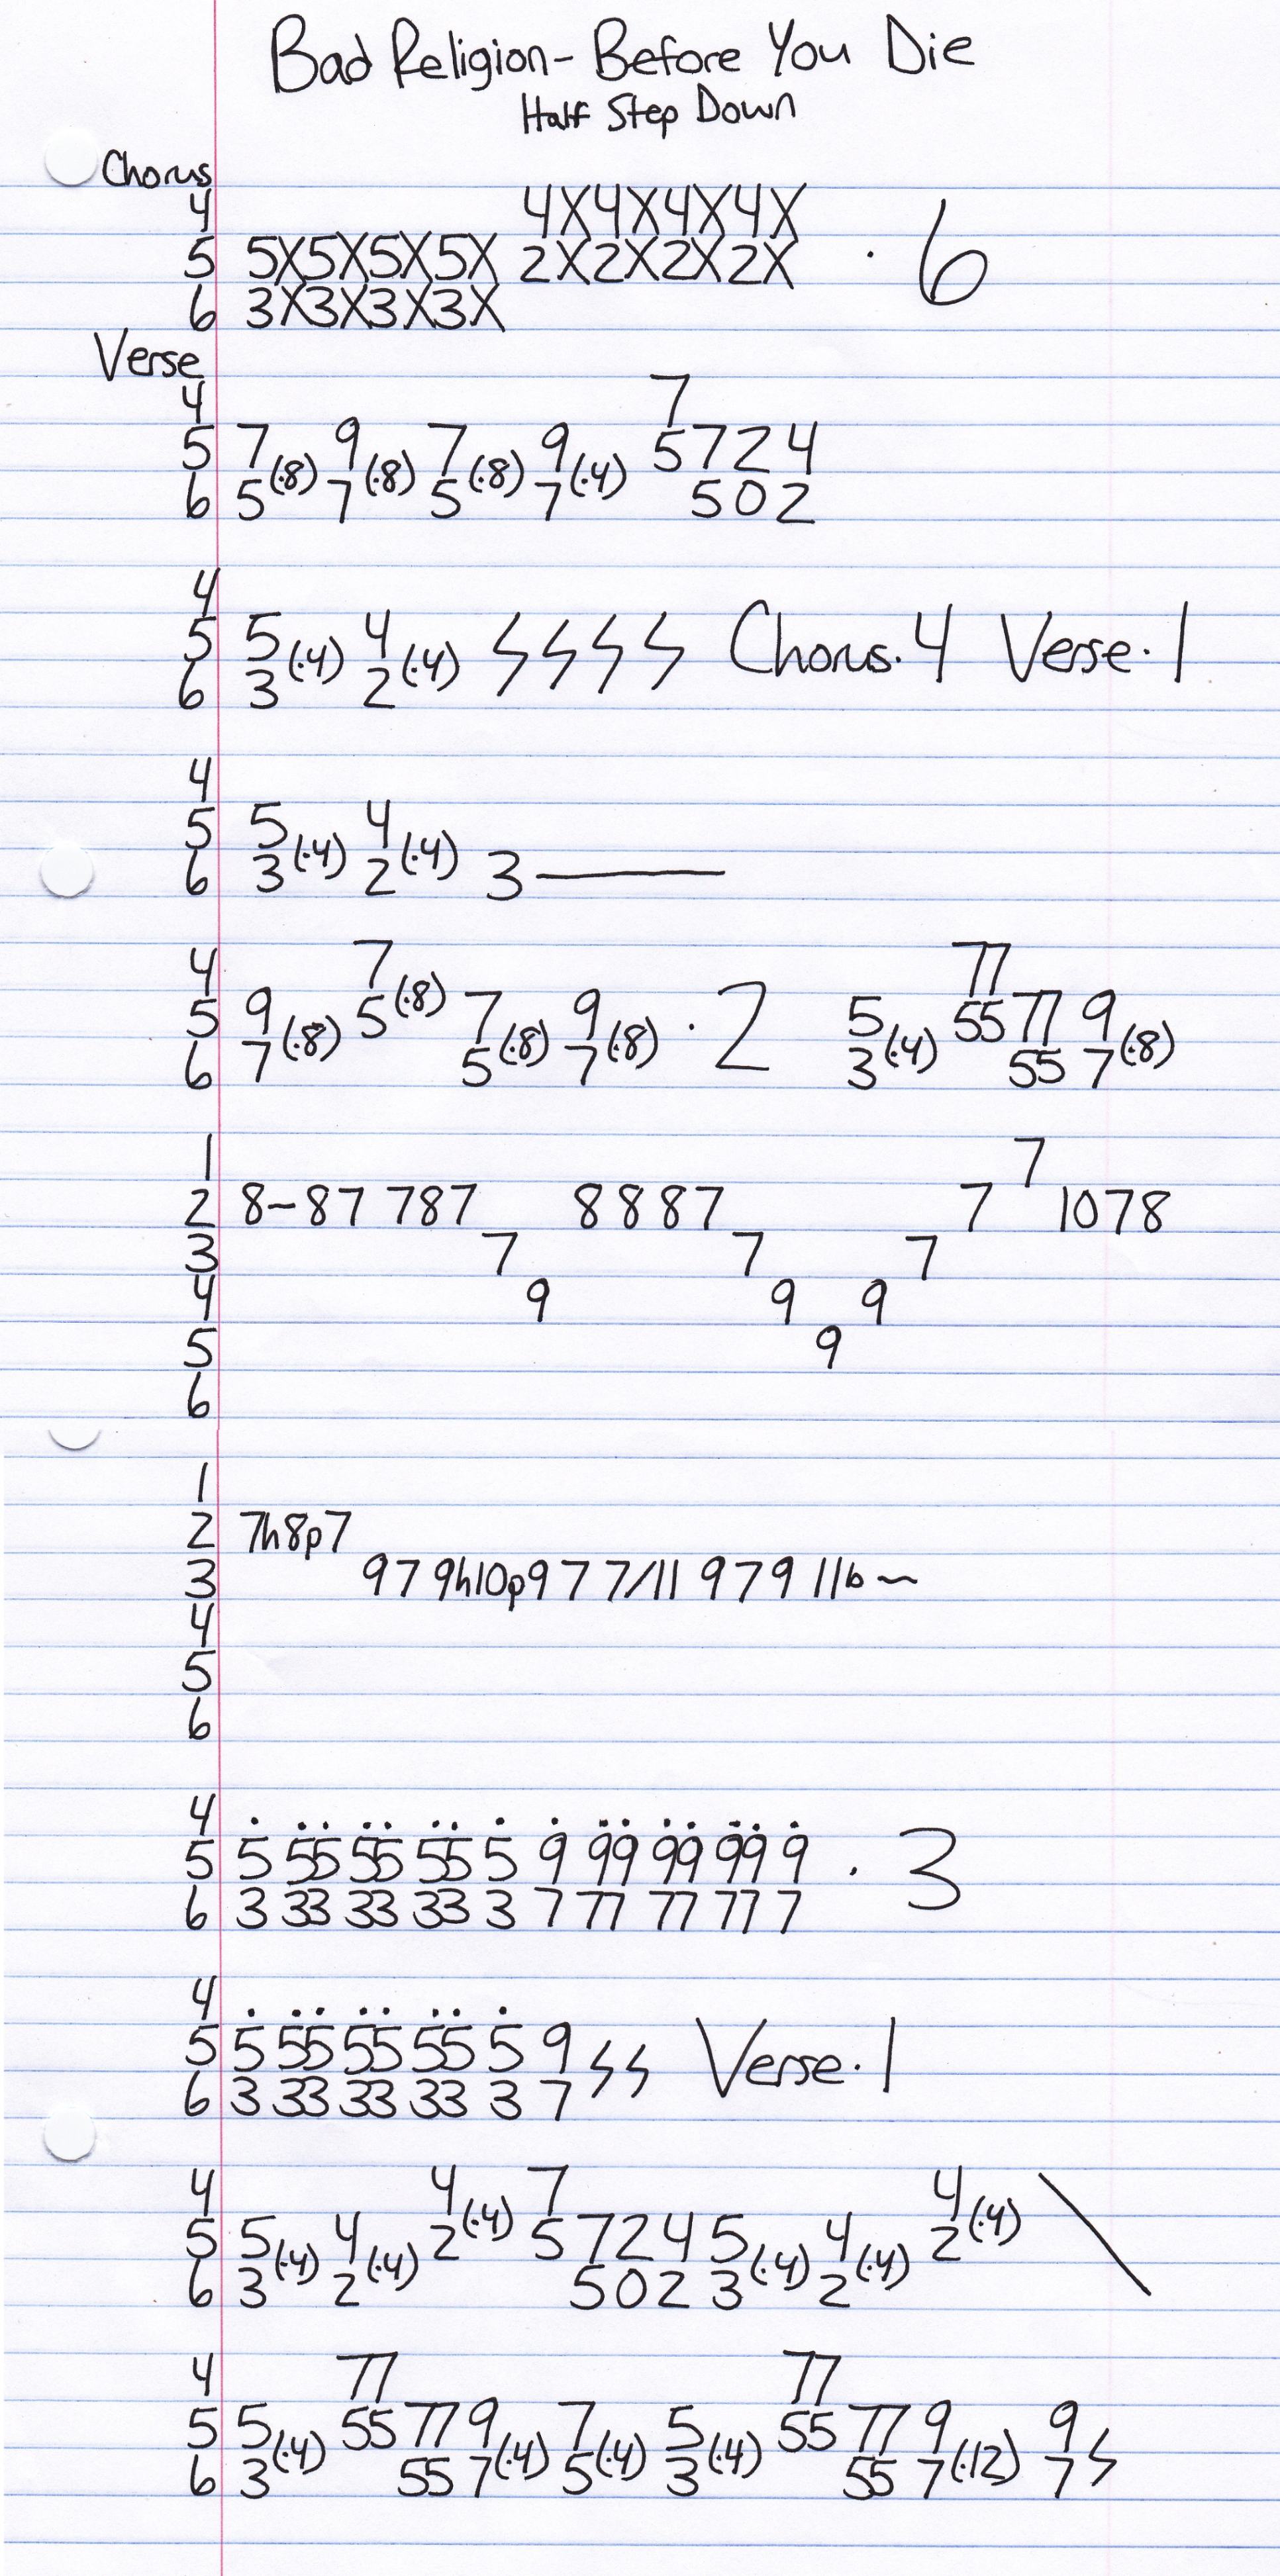 Bad Religion- Before You Die
Half Step Down
Chorus
4 4X4X4X4X
5 5X5X5X5X 2X2X2X2X · 6
6 3X3X3X3X
Verse
4 7
5 7 9 7 9 5 7 2 4
(·8) (·8) (·8) (·4)
6 5 7 5 7 5 0 2
4
5 5 4 Chorus·4 Verse·1
(·4) (·4)
6 3 2
4
5 5 4
(·4) (·4)
6 3 2 3
4 7 (·8) 77
5 9 5 7 9 · 2 5 55 77 9
(·8) (·8) (·8) (·4) (·8)
6 7 5 7 3 55 7
1 7
2 8-87 787 8887 7 1078
3 7 7 7
4 9 9 9
5 9
6
1
2 7h8p7
3 979h10p977/11 979 11b~
4
5
6
4
5 5 55 55 55 5 9 99 99 99 9 · 3
6 3 33 33 33 3 7 77 77 77 7
4
5 5 55 55 55 5 9 Verse·1
6 3 33 33 33 3 7
4 4(·4) 7 4(·4) \
5 5 4 2 5 7 2 4 5 4 2
(·4) (·4) (·4) (·4)
6 3 2 5 0 2 3 2
4 77 77
5 5 55 77 9 7 5 55 77 9 9
(·4) (·4) (·4) (·4) (·12)
6 3 55 7 5 3 55 7 7